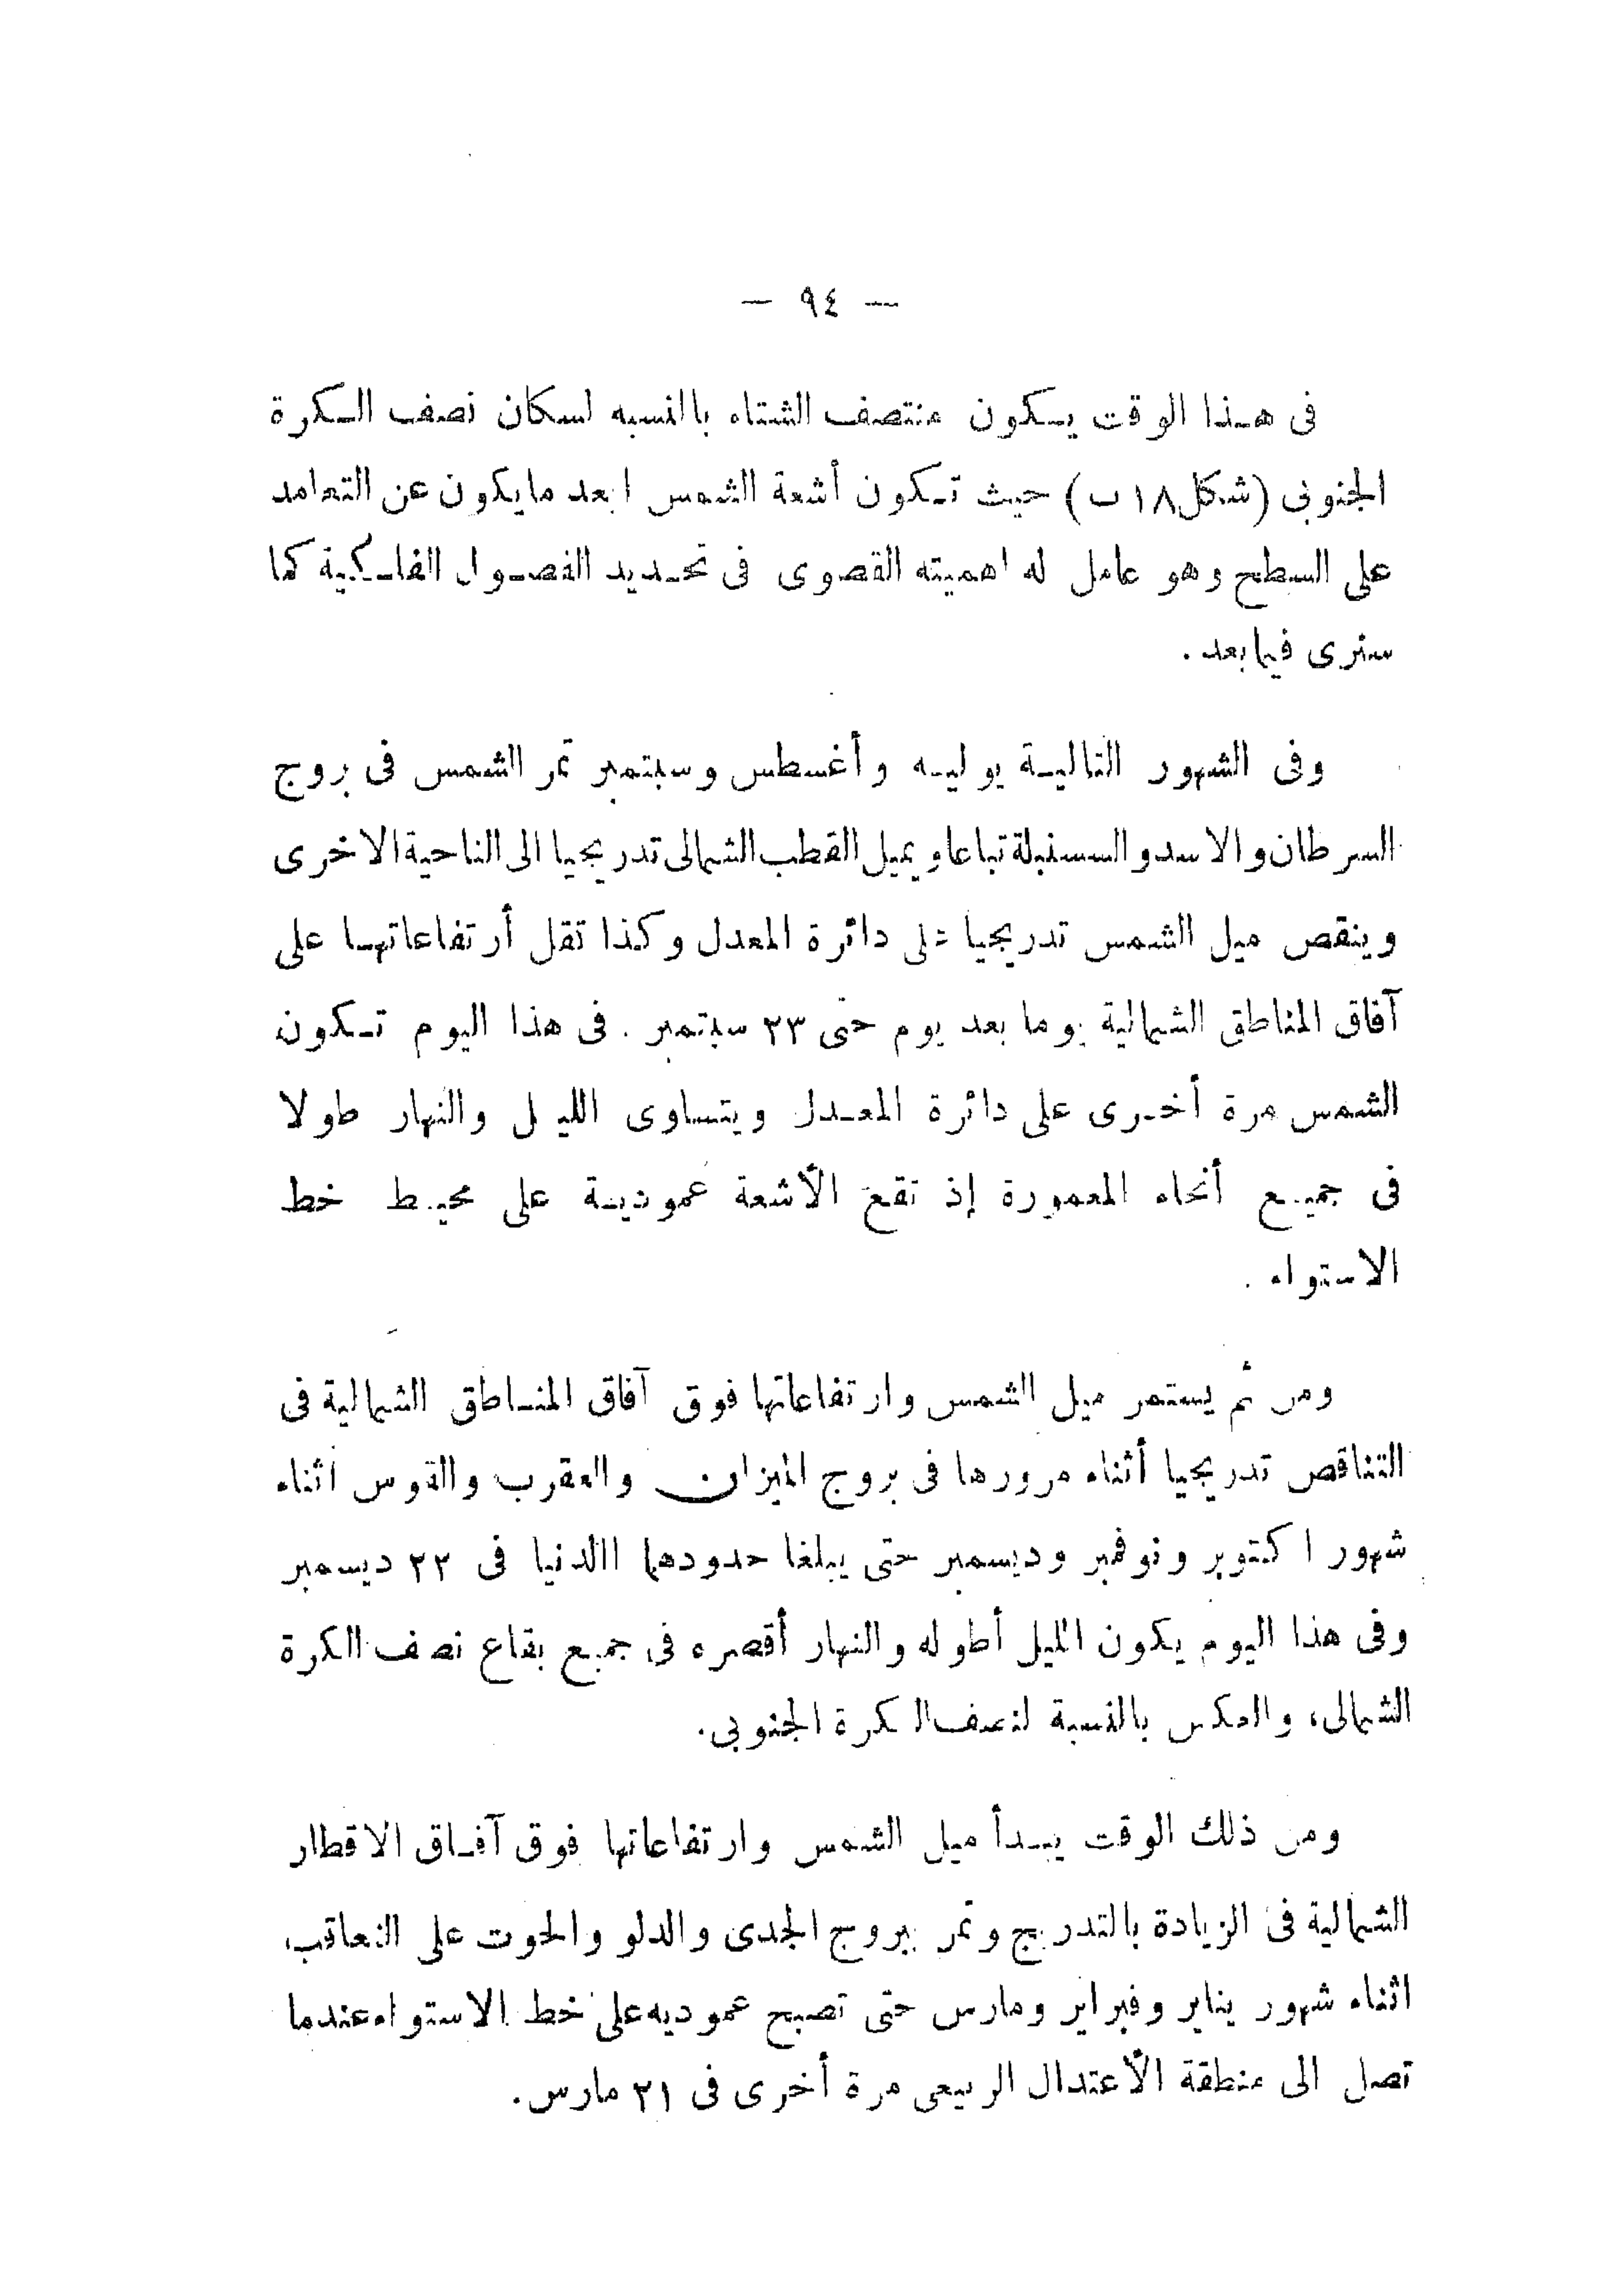 — ٩٤ —
فى هذا الوقت يكون منتصف الشتاء بالنسبه لسكان نصف الكرة
الجنوبى (شكل ١٨ ب) حيث تكون أشعة الشمس ابعد ما يكون عن التعامد
على السطح وهو عامل له اهميته القصوى فى تحديد الفصول الفلكية كما
سنرى فيما بعد .
وفى الشهور التالية يوليه وأغسطس وسبتمبر تمر الشمس فى بروج
السرطان والاسد والسسنبلة تباعا ويميل القطب الشمالى تدريجيا الى الناحية الاخرى
وينقص ميل الشمس تدريجيا على دائرة المعدل وكذا تقل أرتفاعاتها على
آفاق المناطق الشمالية يوما بعد يوم حتى ٢٣ سبتمبر . فى هذا اليوم تكون
الشمس مرة أخرى على دائرة المعدل ويتساوى الليل والنهار طولا
فى جميع أنحاء المعمورة إذ تقع الأشعة عمودية على محيط خط
الاستواء .
ومن ثم يستمر ميل الشمس وارتفاعاتها فوق آفاق المناطق الشمالية فى
التناقص تدريجيا أثناء مرورها فى بروج الميزان والعقرب والقوس اثناء
شهور اكتوبر ونوفمبر وديسمبر حتى يبلغا حدودهما االدنيا فى ٢٢ ديسمبر
وفى هذا اليوم يكون الليل أطوله والنهار أقصره فى جميع بقاع نصف الكرة
الشمالى، والعكس بالنسبة لنصف الكرة الجنوبى.
ومن ذلك الوقت يبدأ ميل الشمس وارتفاعاتها فوق آفاق الاقطار
الشمالية فى الزيادة بالتدريج وتمر ببروج الجدى والدلو والحوت على التعاقب،
اثناء شهور يناير وفبراير ومارس حتى تصبح عموديه على خط الاستواء عندما
تصل الى منطقة الأعتدال الربيعى مرة أخرى فى ٢١ مارس.